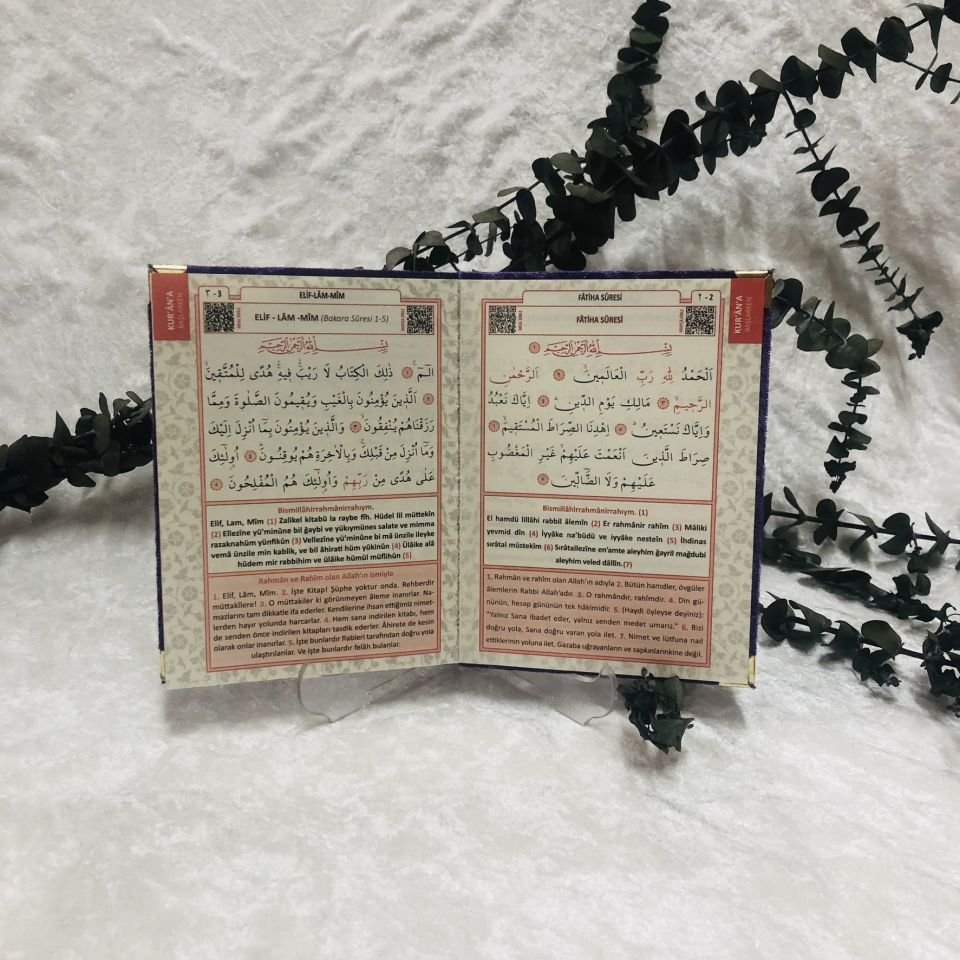 KUR'ÂN'A
BAŞLARKEN
٣ - 3
ELİF-LÂM-MÎM
ELİF - LÂM -MÎM (Bakara Sûresi 1-5)
بِسْمِ اللّٰهِ الرَّحْمٰنِ الرَّحِيمِ
الٓمٓ ۚ ﴿١﴾ ذٰلِكَ الْكِتَابُ لَا رَيْبَۚ ف۪يهِۚ هُدًى لِلْمُتَّق۪ينَۙ
﴿٢﴾ اَلَّذ۪ينَ يُؤْمِنُونَ بِالْغَيْبِ وَيُق۪يمُونَ الصَّلٰوةَ وَمِمَّا
رَزَقْنَاهُمْ يُنْفِقُونَۙ ﴿٣﴾ وَالَّذ۪ينَ يُؤْمِنُونَ بِمَٓا اُنْزِلَ اِلَيْكَ
وَمَٓا اُنْزِلَ مِنْ قَبْلِكَۚ وَبِالْاٰخِرَةِ هُمْ يُوقِنُونَۜ ﴿٤﴾ اُو۬لٰٓئِكَ
عَلٰى هُدًى مِنْ رَبِّهِمْ وَاُو۬لٰٓئِكَ هُمُ الْمُفْلِحُونَ ﴿٥﴾
Bismillâhirrahmânirrahıym.
Elif, Lam, Mîm (1) Zalikel kitabü la raybe fîh. Hüdel lil müttekîn
(2) Ellezîne yü'minûne bil ğaybi ve yükıymûnes salate ve mimma
razaknahüm yünfikûn (3) Vellezîne yü'minûne bi mâ ünzile ileyke
vemâ ünzile min kablik, ve bil âhirati hüm yûkinûn (4) Ülâike alâ
hüdem mir rabbihim ve ülâike hümül müflihûn (5)
Rahmân ve Rahîm olan Allah'ın ismiyle
1. Elif, Lâm, Mîm. 2. İşte Kitap! Şüphe yoktur onda. Rehberdir
müttakîlere! 3. O müttakiler ki görünmeyen âleme inanırlar. Na-
mazlarını tam dikkatle ifa ederler. Kendilerine ihsan ettiğimiz nimet-
lerden hayır yolunda harcarlar. 4. Hem sana indirilen kitabı, hem
de senden önce indirilen kitapları tasdik ederler. Âhirete de kesin
olarak onlar inanırlar. 5. İşte bunlardır Rableri tarafından doğru yola
ulaştırılanlar. Ve işte bunlardır felâh bulanlar.
FÂTİHA SÛRESİ
٢ - 2
KUR'ÂN'A
BAŞLARKEN
FÂTİHA SÛRESİ
بِسْمِ اللّٰهِ الرَّحْمٰنِ الرَّحِيمِ ﴿١﴾
اَلْحَمْدُ لِلّٰهِ رَبِّ الْعَالَم۪ينَۙ ﴿٢﴾ اَلرَّحْمٰنِ
الرَّح۪يمِۙ ﴿٣﴾ مَالِكِ يَوْمِ الدّ۪ينِۜ ﴿٤﴾ اِيَّاكَ نَعْبُدُ
وَاِيَّاكَ نَسْتَع۪ينُۜ ﴿٥﴾ اِهْدِنَا الصِّرَاطَ الْمُسْتَق۪يمَۙ ﴿٦﴾
صِرَاطَ الَّذ۪ينَ اَنْعَمْتَ عَلَيْهِمْۙ غَيْرِ الْمَغْضُوبِ
عَلَيْهِمْ وَلَا الضَّٓالّ۪ينَ ﴿٧﴾
Bismillâhirrahmânirrahıym. (1)
El hamdü lillâhi rabbil âlemîn (2) Er rahmânir rahîm (3) Mâliki
yevmid dîn (4) İyyâke na'büdü ve iyyâke nesteîn (5) İhdinas
sıratal müstekîm (6) Sıratallezîne en'amte aleyhim ğayril mağdubi
aleyhim veled dâllîn.(7)
1. Rahmân ve rahîm olan Allah'ın adıyla 2. Bütün hamdler, övgüler
âlemlerin Rabbi Allah'adır. 3. O rahmândır, rahîmdir. 4. Din gü-
nünün, hesap gününün tek hâkimidir. 5. (Haydi öyleyse deyiniz):
"Yalnız Sana ibadet eder, yalnız senden medet umarız." 6. Bizi
doğru yola, Sana doğru varan yola ilet. 7. Nimet ve lütfuna nail
ettiklerinin yoluna ilet. Gazaba uğrayanların ve sapkınlarınkine değil.